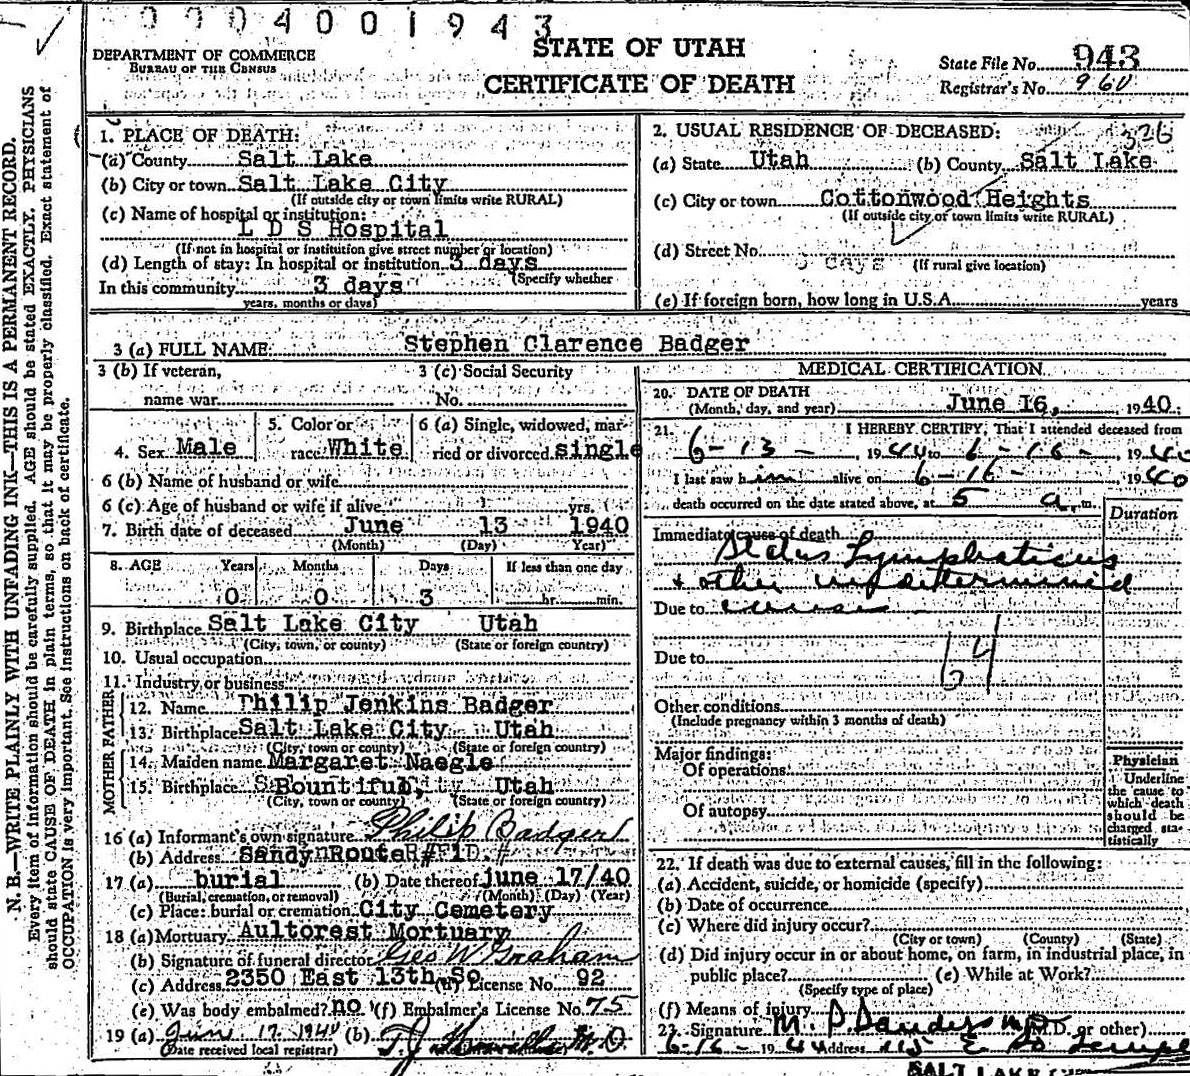 0004001943
DEPARTMENT OF COMMERCE
BUREAU OF THE CENSUS
STATE OF UTAH
CERTIFICATE OF DEATH
State File No. 943
Registrar's No. 960
N. B.—WRITE PLAINLY WITH UNFADING INK—THIS IS A PERMANENT RECORD.
Every item of information should be carefully supplied. AGE should be stated EXACTLY. PHYSICIANS
should state CAUSE OF DEATH in plain terms, so that it may be properly classified. Exact statement of
OCCUPATION is very important. See instructions on back of certificate.
1. PLACE OF DEATH:
(a) County Salt Lake
(b) City or town Salt Lake City
(If outside city or town limits write RURAL)
(c) Name of hospital or institution:
L D S Hospital
(If not in hospital or institution give street number or location)
(d) Length of stay: In hospital or institution 3 days
(Specify whether
In this community 3 days
years, months or days)
2. USUAL RESIDENCE OF DECEASED: 326
(a) State Utah (b) County Salt Lake
(c) City or town Cottonwood Heights
(If outside city or town limits write RURAL)
(d) Street No.
3 days (If rural give location)
(e) If foreign born, how long in U.S.A. years
3 (a) FULL NAME: Stephen Clarence Badger
3 (b) If veteran, 3 (c) Social Security
name war No.
4. Sex Male 5. Color or race White 6 (a) Single, widowed, married or divorced single
6 (b) Name of husband or wife
6 (c) Age of husband or wife if alive yrs.
7. Birth date of deceased June 13 1940
(Month) (Day) Year)
8. AGE Years Months Days If less than one day
0 0 3 hr. min.
9. Birthplace Salt Lake City Utah
(City, town, or county) (State or foreign country)
10. Usual occupation
11. Industry or business
FATHER
12. Name Philip Jenkins Badger
13. Birthplace Salt Lake City Utah
(City, town or county) (State or foreign country)
MOTHER
14. Maiden name Margaret Naegle
15. Birthplace Bountiful, Utah
(City, town or county) (State or foreign country)
16 (a) Informant's own signature Philip Badger
(b) Address Sandy Route # 1
17 (a) burial (b) Date thereof june 17/40
(Burial, cremation, or removal) (Month) (Day) (Year)
(c) Place: burial or cremation City Cemetery
18 (a) Mortuary Aultorest Mortuary
(b) Signature of funeral director Geo W Graham
(c) Address 2350 East 13th So (d) License No. 92
(e) Was body embalmed? no (f) Embalmer's License No. 75
19 (a) June 17, 1940 (b) T. J. M. D.
(Date received local registrar)
MEDICAL CERTIFICATION
20. DATE OF DEATH
(Month, day, and year) June 16, 1940
21. I HEREBY CERTIFY, That I attended deceased from
6-13-, 1940 to 6-16-, 1940
I last saw him alive on 6-16-, 1940
death occurred on the date stated above, at 5 a. m.
Duration
Immediate cause of death
Status Lymphaticus
& other undetermined
Due to causes
64
Due to
Other conditions
(Include pregnancy within 3 months of death)
Major findings:
Of operations
Of autopsy
Physician
Underline
the cause to
which death
should be
charged sta-
tistically
22. If death was due to external causes, fill in the following:
(a) Accident, suicide, or homicide (specify)
(b) Date of occurrence
(c) Where did injury occur?
(City or town) (County) (State)
(d) Did injury occur in or about home, on farm, in industrial place, in
public place? (e) While at Work?
(Specify type of place)
(f) Means of injury
23. Signature M. P. Sanders M.D. (M.D. or other)
6-16-1940 Address 115 E So Temple
SALT LAKE